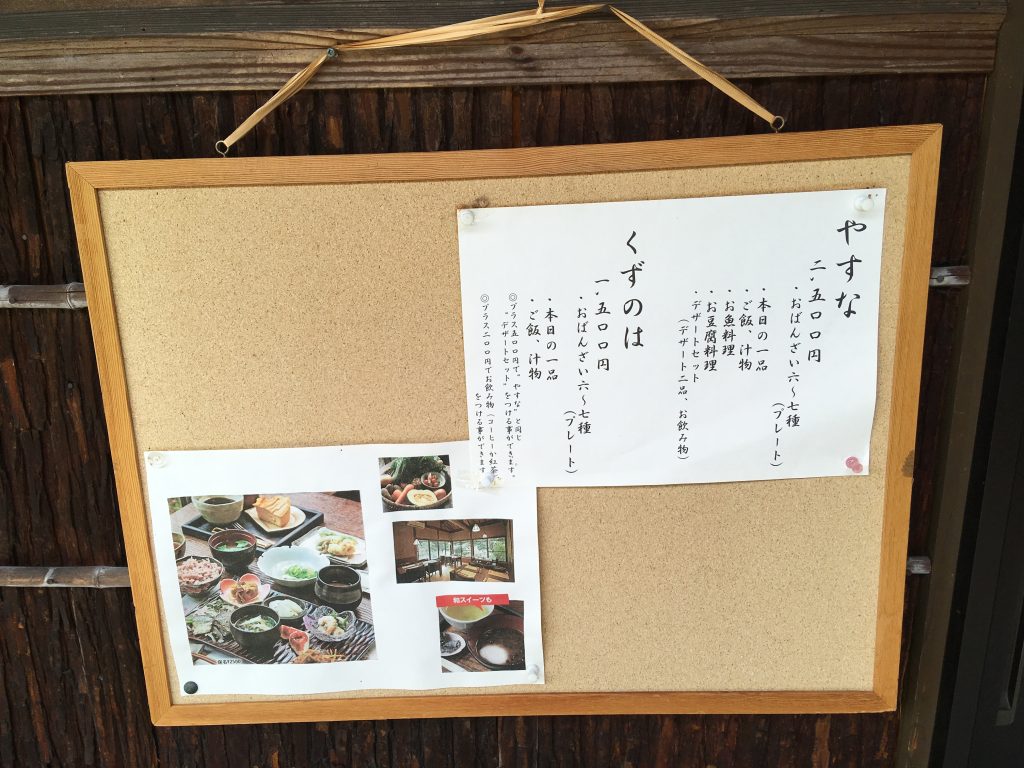 やすな
二、五〇〇円
・おばんざい六〜七種
(プレート)
・本日の一品
・ご飯、汁物
・お魚料理
・お豆腐料理
・デザートセット
(デザート二品、お飲み物)
くずのは
一、五〇〇円
・おばんざい六〜七種
(プレート)
・本日の一品
・ご飯、汁物
◎プラス五〇〇円で、"やすな"と同じ
"デザートセット"をつける事ができます。
◎プラス二〇〇円でお飲み物(コーヒーか紅茶
をつける事ができます
和スイーツも
保名¥2500